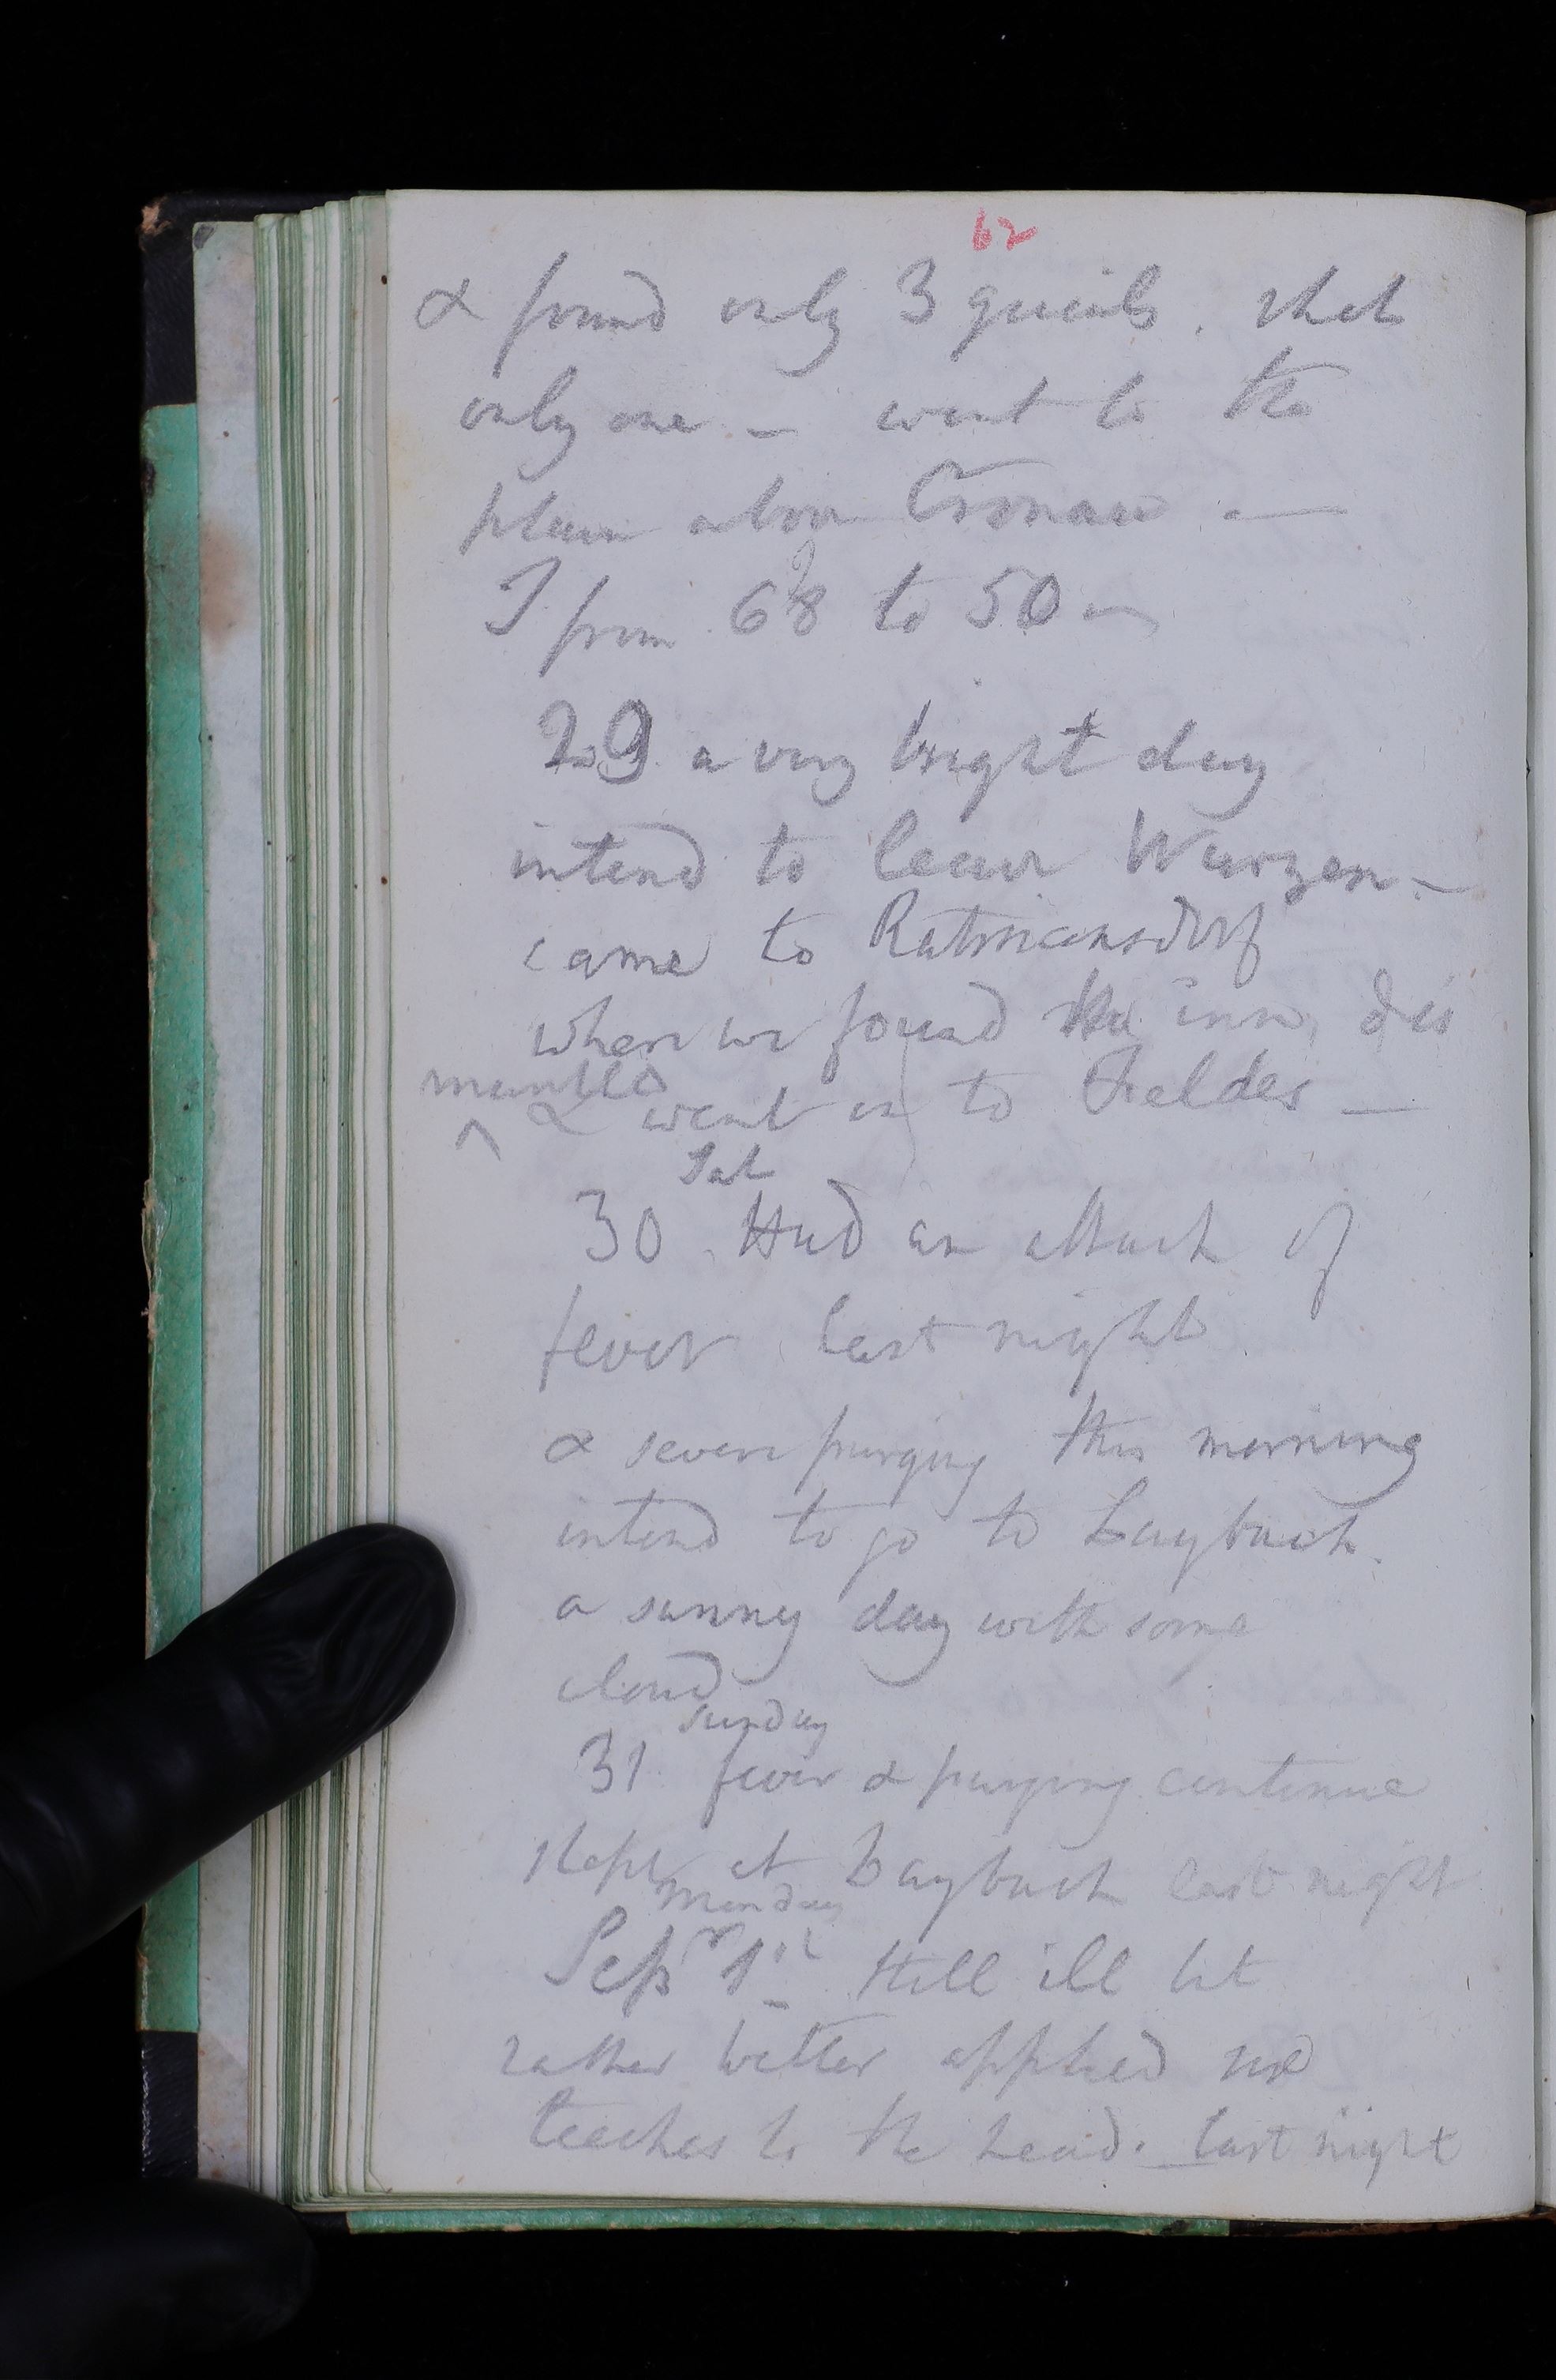 62
& found only 3 quails. shot
only one – went to the
plain above Cronau. —
T from 68 to 50 –
29 a very bright day
intend to leave Wurzen. –
came to Ratmansdorf
where we found the inn, dis
mantled
^ & went on to Feldes —
Sat
30. Had an attack of
fever last night
& severe purging this morning
intend to go to Laybach.
a sunny day with some
cloud
Sunday
31 fever & purging continue
slept at Laybach last night
Monday
Sepr 1st still ill but
rather better applied
leeches to the head. last night